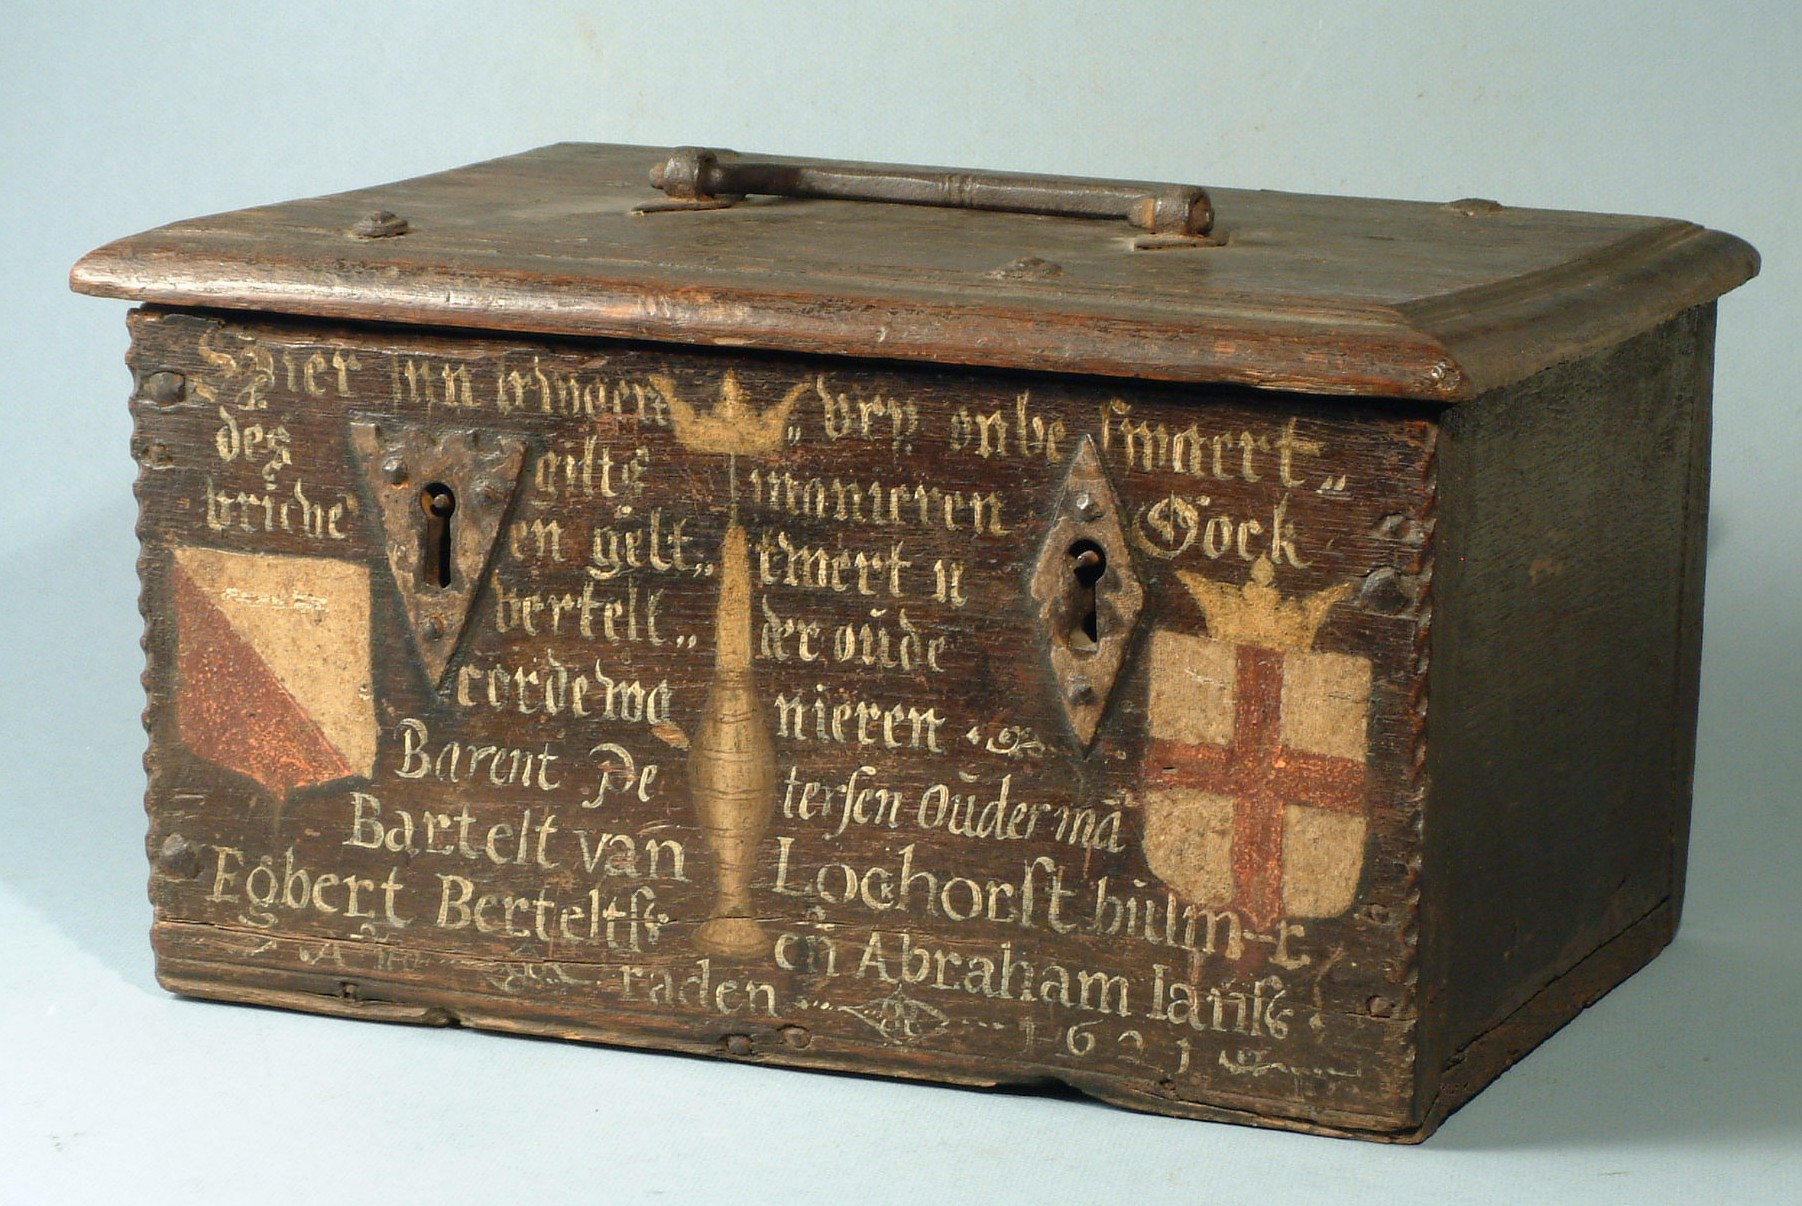 Hier inn bewaert „ vry onbeswaert „
des gilts manieren Oock
brieve en gelt „ twert u
vertelt „ der oude
cordewa nieren
Barent Pe tersen Ouderma
Bartelt van Lochorst bulm-r
Egbert Berteltsz en Abraham Iansz
Ano raden 1621